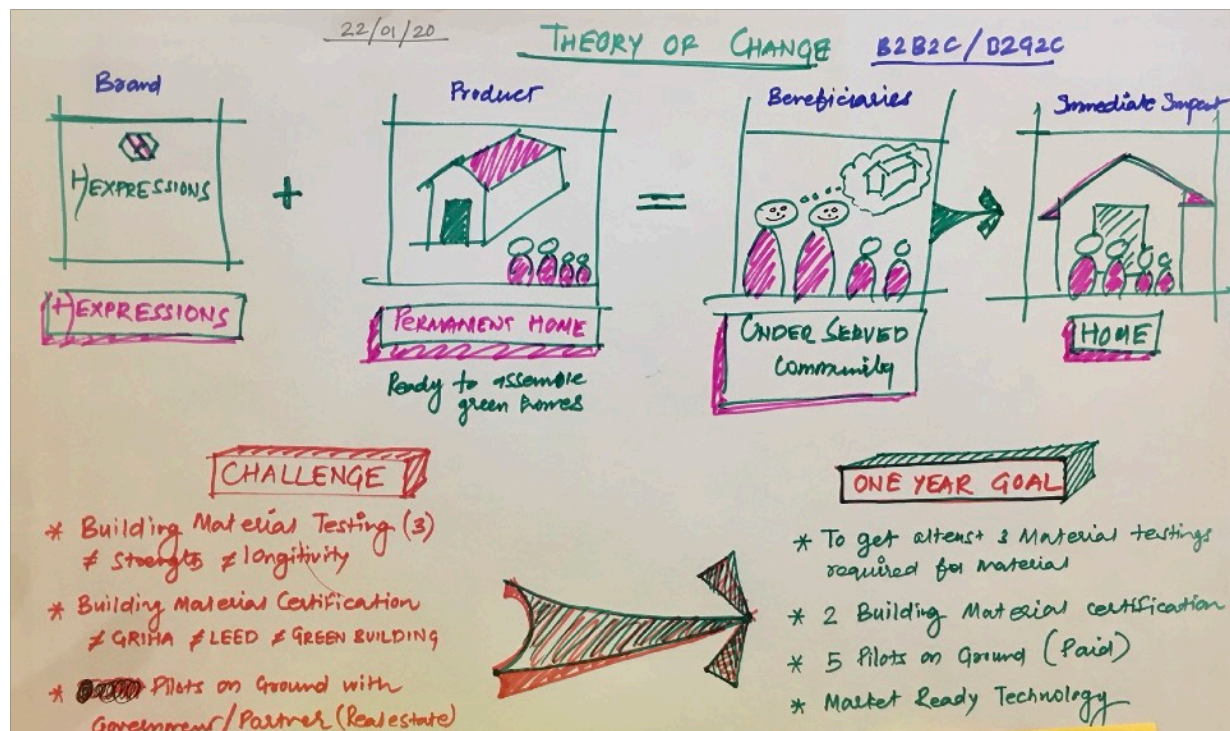 22/01/20
THEORY OF CHANGE
B2B2C/B2G2C
Brand
HEXPRESSIONS
HEXPRESSIONS
+
Product
PERMAMENT HOME
Ready to assemble
green homes
=
Beneficiaries
UNDER SERVED
Community
Immediate Impact
HOME
CHALLENGE
* Building Material Testing (3)
≠ Strength ≠ longitivity
* Building Material Certification
≠ GRIHA ≠ LEED ≠ GREEN BUILDING
* Pilots on Ground with
Government/Partner (Real estate)
ONE YEAR GOAL
* To get 3 Material testings
required for material
* 2 Building Material certification
* 5 Pilots on Ground (Paid)
* Market Ready Technology